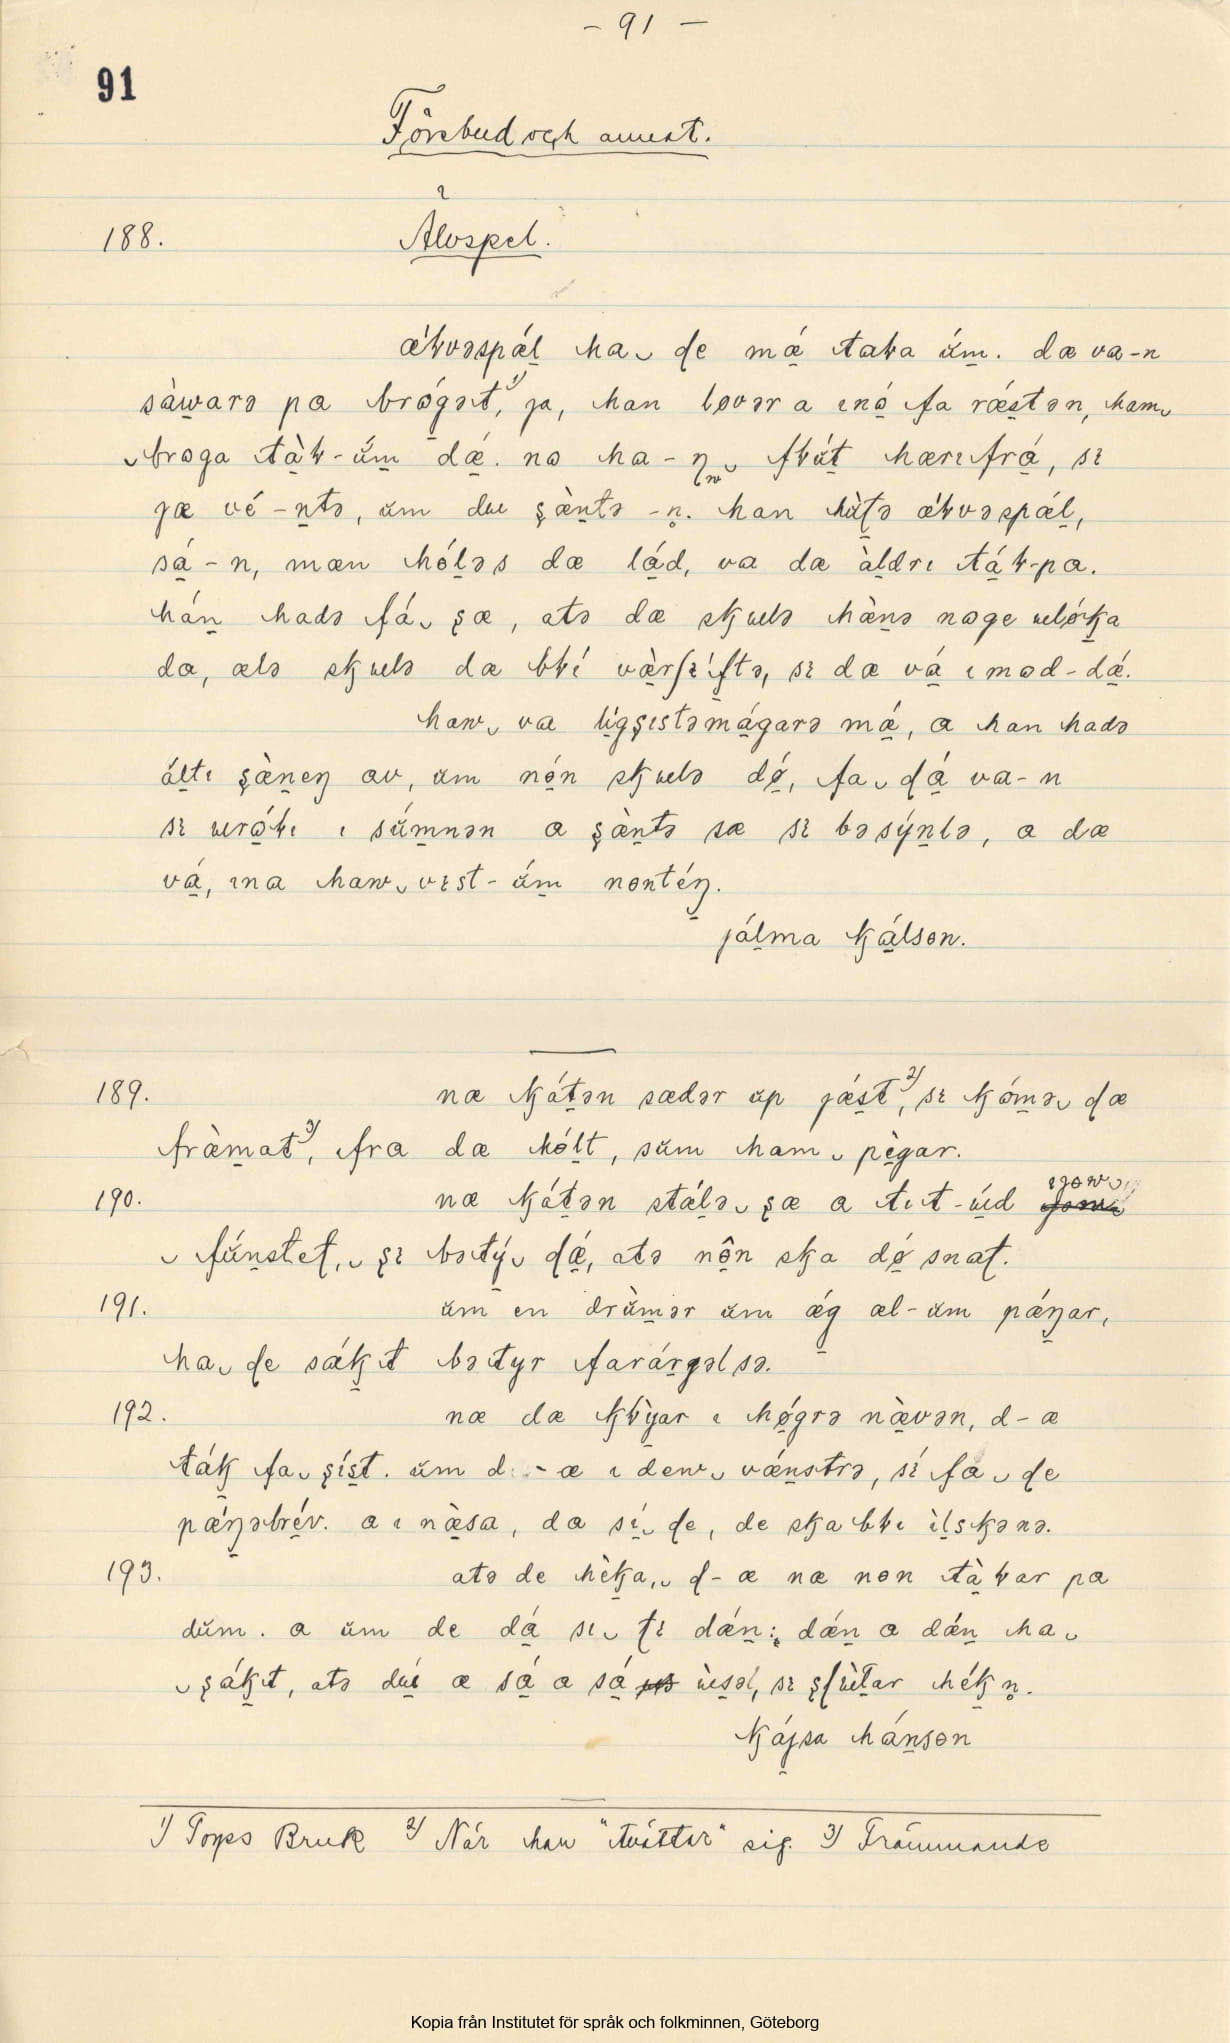 - 91 -
91
Förebud och annat.
188. Älvspel.
ǽƚvəspǽl ha de mǽ taƚa ŭ́m. dæ va-n
sàwarə pa brǿgət,¹⁾ ja, han løvər a ınǿ fa rǽstən, ham
brøga tàƚ-ŭ́m dǽ. nə ha-ŋ fƚút hærıfrá, sı
jæ vé-ntə, ŭm du şæ̀ntə-n. han hùʈə ǽƚvəspǽl,
sá-n, mæn hóləs dæ lád, va da àldrı táƚ-pa.
hán hadə fá şæ, atə dæ skulə hæ̀nə nøge ulǿka
da, ælə skulə da bƚí væ̀rſıftə, sı dæ vá ı mod-dǽ.
haw va lígşıstəmágarə mǽ, a han hadə
áltı şæ̀neŋ av, ŭm nón skulə dǿ, fa ɖá va-n
sı urǿƚı ı sŭ́mnən a şæ̀ntə sæ sı bəsýnlə, a dæ
vá, ına haw vıst-ŭ́m nontéŋ.
jálma kálson.
189. næ kátən sædər ŭp jǽst,²⁾ sı kómə ɖæ
fràmat,³⁾ fra dæ hólt, sŭm ham pègar.
190. næ kátən stǽlə şæ a tıt-úd ıjow
fŭ́nstet, şı bətý ɖǽ, atə nôn ska dǿ snaʈ.
191. ŭm en drŭ̀mər ŭm ǽg æl-ŭm pǽŋar,
ha ɖe sǽkıt bətyr farárgəlsə.
192. næ dæ kƚỳar ı hǿgrə næ̀vən, d-æ
ták fa şíst. ŭm d-æ ı dew vǽnstrə, sí fa ɖe
pǽŋəbrév. a ı næ̀sa, da sí ɖe, de ska bƚı ìlskənə.
193. atə de hèka, ɖ-æ næ non tàƚar pa
dŭm. a ŭm de dá sı ʈı dǽn: dǽn a dǽn ha
şǽkıt, atə dú æ sá a sá ùsəl, sı şſùtar hékn.
kájsa hánson
1) Töpes Bruk 2) När han "tvättar" sig. 3) Främmande
Kopia från Institutet för språk och folkminnen, Göteborg